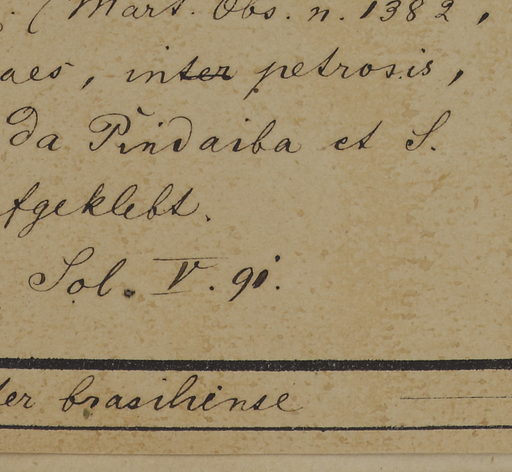 (Mart. Obs. n. 1382,
aes, inter petrosis,
da Pindaiba et S.
fgeklebt.
Sol. V. 91.
er brasiliense